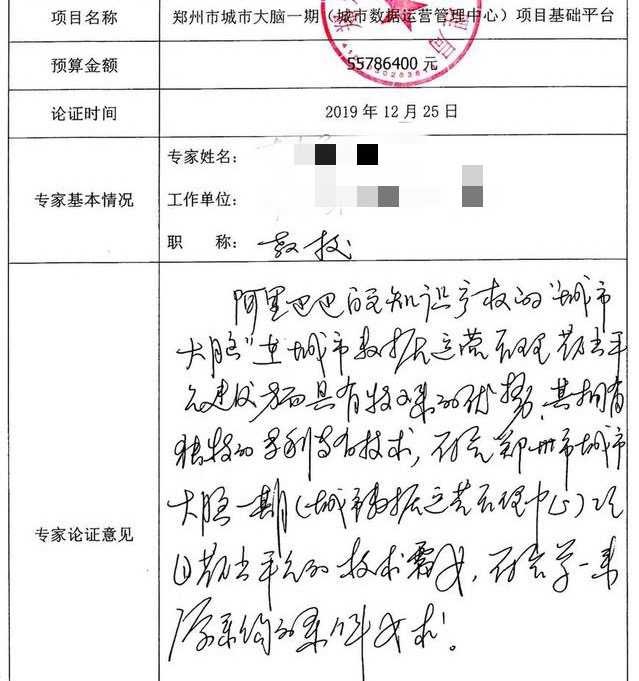 项目名称 郑州市城市大脑一期（城市数据运营管理中心）项目基础平台
预算金额 55786400 元
论证时间 2019 年 12 月 25 日
专家姓名：
专家基本情况 工作单位：
职　　称： 教授
阿里巴巴的自主知识产权的"城市
大脑"在城市数据运营管理基础平
台建设方面具有较明显的优势，其拥有
独特的专利专有技术，符合郑州市城市
大脑一期（城市数据运营管理中心）项
专家论证意见
目基础平台的技术需求，符合单一来
源采购的条件要求。